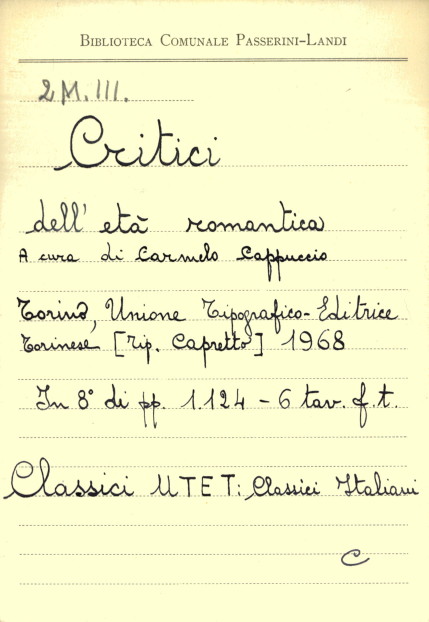 BIBLIOTECA COMUNALE PASSERINI-LANDI
2 M. III.
Critici
dell' età romantica
A cura di Carmelo Cappuccio
Torino, Unione Tipografico-Editrice
Torinese [Tip. Capretto] 1968
In 8° di pp. 1.124 - 6 tav. f.t.
Classici UTET: Classici Italiani
C